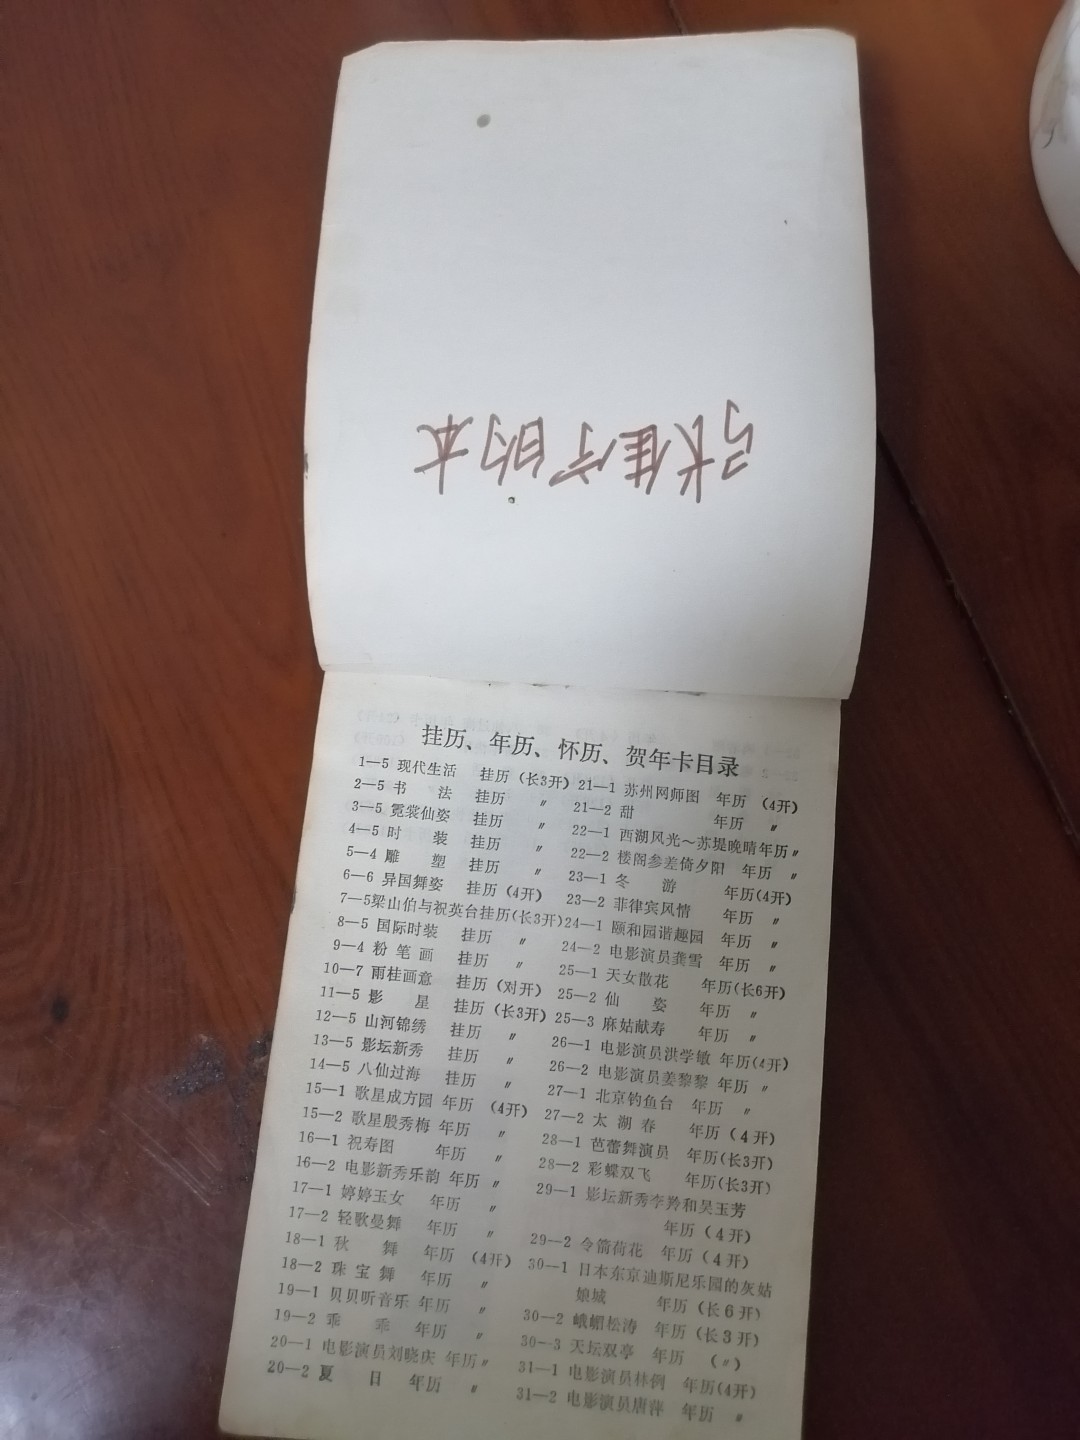 张佳宁的本
挂历、年历、怀历、贺年卡目录
1—5 现代生活 挂历 (长3开)
2—5 书 法 挂历 〃
3—5 霓裳仙姿 挂历 〃
4—5 时 装 挂历 〃
5—4 雕 塑 挂历 〃
6—6 异国舞姿 挂历 (4开)
7—5梁山伯与祝英台挂历(长3开)
8—5 国际时装 挂历 〃
9—4 粉 笔 画 挂历 〃
10—7 雨桂画意 挂历 (对开)
11—5 影 星 挂历 (长3开)
12—5 山河锦绣 挂历 〃
13—5 影坛新秀 挂历 〃
14—5 八仙过海 挂历 〃
15—1 歌星成方园 年历 (4开)
15—2 歌星殷秀梅 年历 〃
16—1 祝寿图 年历 〃
16—2 电影新秀乐韵 年历 〃
17—1 婷婷玉女 年历 〃
17—2 轻歌曼舞 年历 〃
18—1 秋 舞 年历 (4开)
18—2 珠 宝 舞 年历 〃
19—1 贝贝听音乐 年历 〃
19—2 乖 乖 年历 〃
20—1 电影演员刘晓庆 年历〃
20—2 夏 日 年历 〃
21—1 苏州网师图 年历 (4开)
21—2 甜 年历 〃
22—1 西湖风光～苏堤晚晴年历〃
22—2 楼阁参差倚夕阳 年历 〃
23—1 冬 游 年历(4开)
23—2 菲律宾风情 年历 〃
24—1 颐和园谐趣园 年历 〃
24—2 电影演员龚雪 年历 〃
25—1 天女散花 年历(长6开)
25—2 仙 姿 年历 〃
25—3 麻姑献寿 年历 〃
26—1 电影演员洪学敏 年历(4开)
26—2 电影演员姜黎黎 年历 〃
27—1 北京钓鱼台 年历 〃
27—2 太 湖 春 年历 (4开)
28—1 芭蕾舞演员 年历(长3开)
28—2 彩蝶双飞 年历(长3开)
29—1 影坛新秀李羚和吴玉芳
年历 (4开)
29—2 令箭荷花 年历 (4开)
30—1 日本东京迪斯尼乐园的灰姑
娘城 年历 (长6开)
30—2 峨嵋松涛 年历 (长3开)
30—3 天坛双亭 年历 (〃)
31—1 电影演员林 年历(4开)
31—2 电影演员唐萍 年历 〃